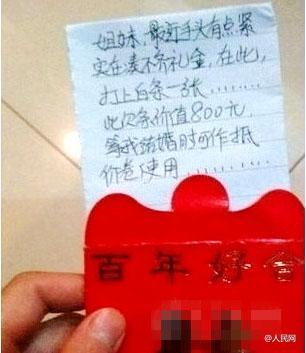 姐妹,最近手头有点紧
实在凑不齐礼金,在此,
打上白条一张........
此欠条价值800元,
等我结婚时可作抵
价卷使用........
百年好合
@人民网